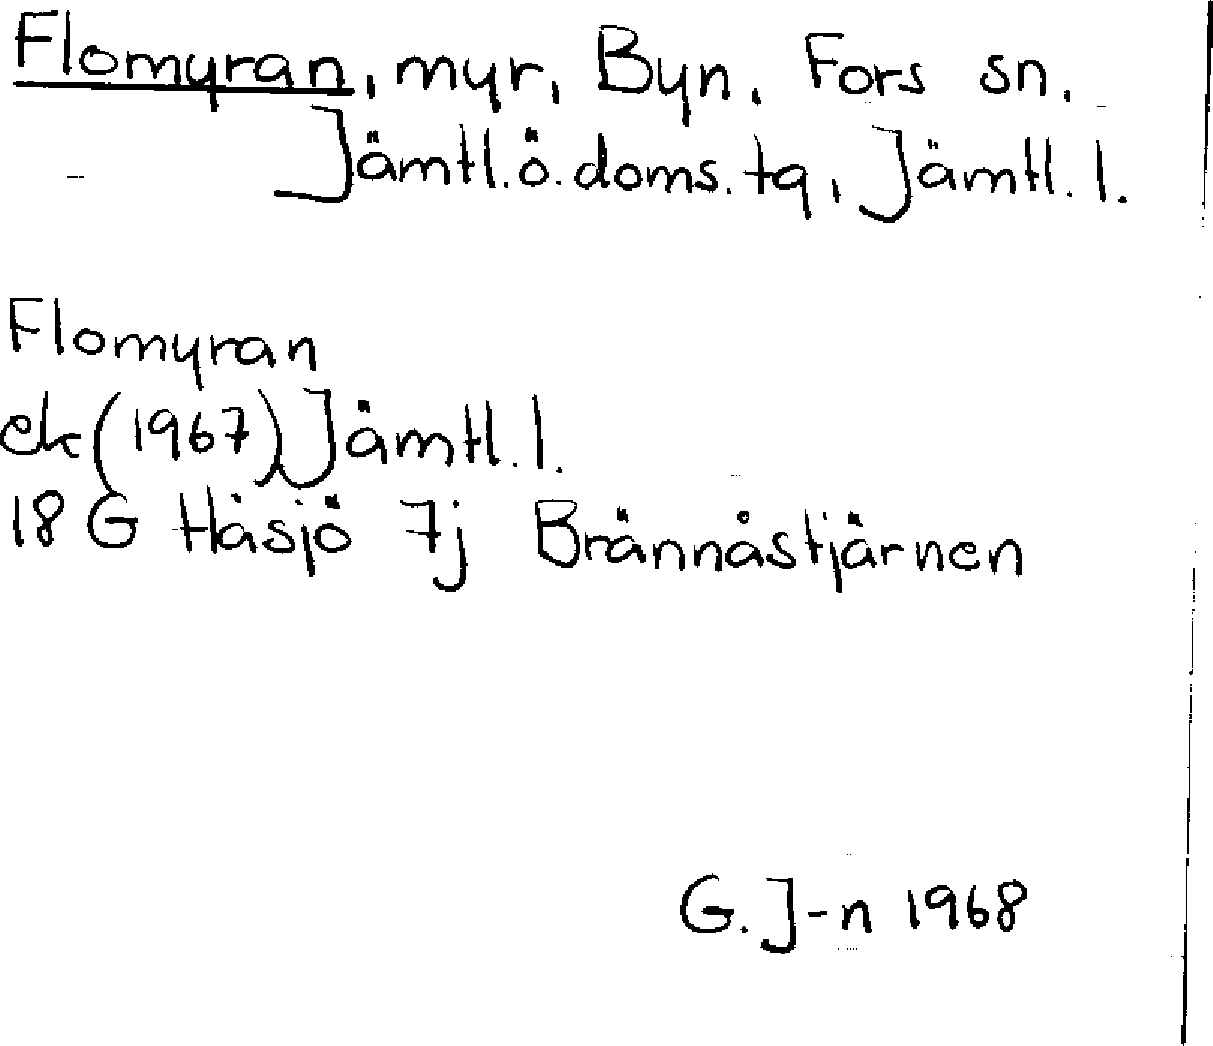 Flomyran, myr, Byn, Fors sn.
Jämtl.ö.doms.tg, Jämtl.l.
Flomyran
ek (1967) Jämtl.l.
18 G Håsjö 7j Brännåstjärnen
G. J-n 1968